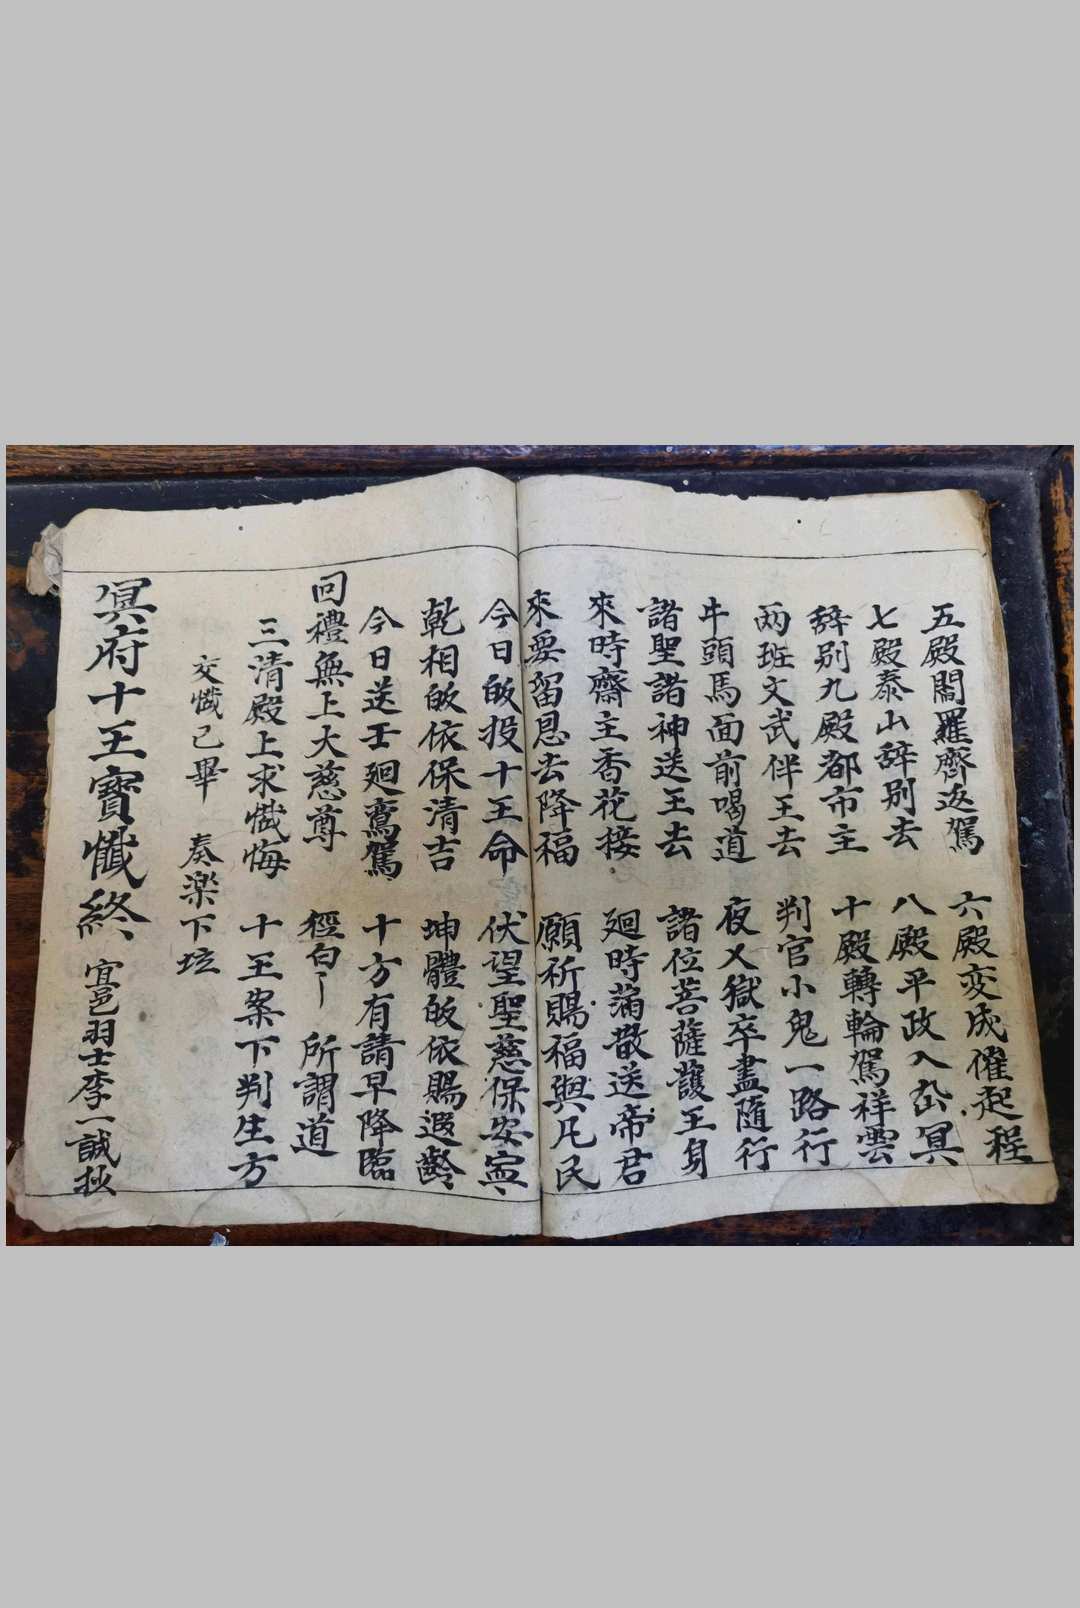 五殿閻羅齊返駕 六殿変成催起程
七殿泰山辞别去 八殿平政入幽冥
辞别九殿都市主 十殿轉輪駕祥雲
两班文武伴王去 判官小鬼一路行
牛頭馬面前喝道 夜乂獄卒盡隨行
諸聖諸神送王去 諸位菩薩護王身
來時齋主香花接 廻時蒲散送帝君
來要留恩去降福 願祈賜福與凡民
今日皈投十王命 伏望聖慈保安寍
乾相皈依保清吉 坤體皈依賜遐齡
今日送王廻鸞駕 十方有請早降臨
回禮無上大慈尊 經句 所謂道
三清殿上求懺悔 十王案下判生方
交懺已畢 奏楽下坛
冥府十王寶懺終 宜邑羽士李一誠抄